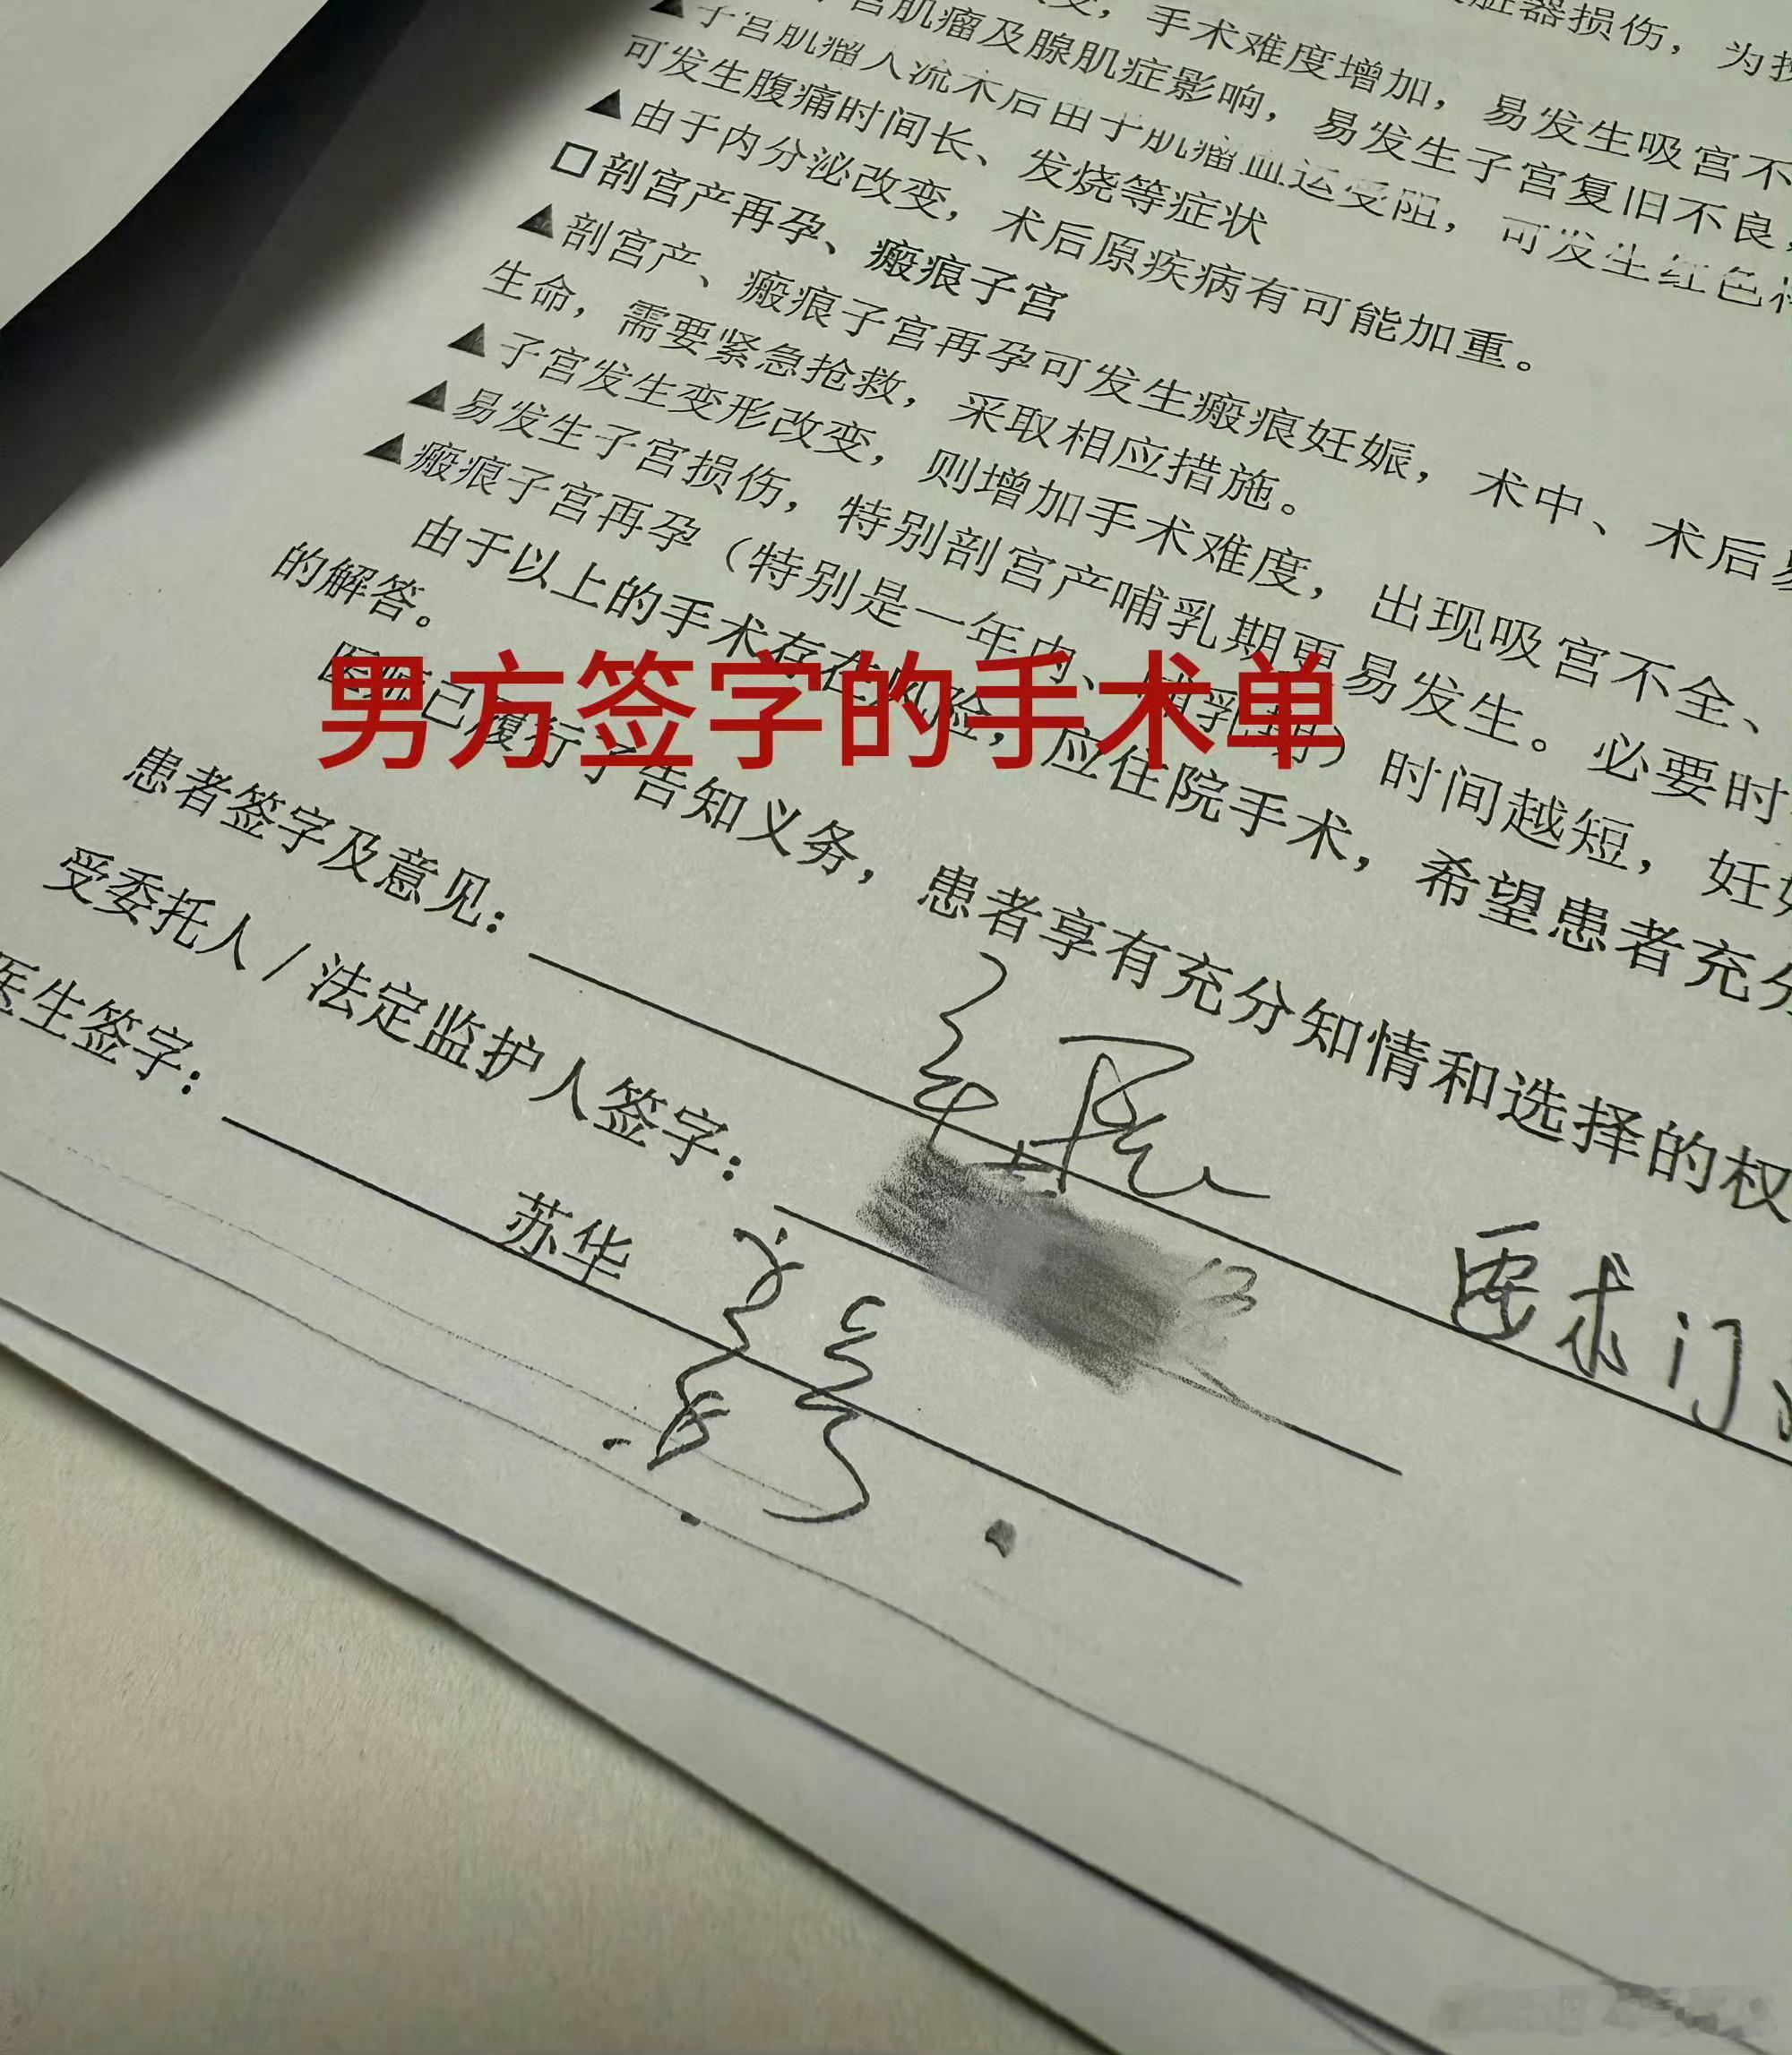 脏器损伤，为
手术难度增加，易发生吸宫不
宫肌瘤及腺肌症影响，易发生子宫复旧不良
▲子宫肌瘤人流术后由于肌瘤血运受阻，可发生红色
可发生腹痛时间长、发烧等症状
▲由于内分泌改变，术后原疾病有可能加重。
□剖宫产再孕、瘢痕子宫
▲剖宫产、瘢痕子宫再孕可发生瘢痕妊娠，术中、术后
生命，需要紧急抢救，采取相应措施。
▲子宫发生变形改变，则增加手术难度，出现吸宫不全、
▲易发生子宫损伤，特别剖宫产哺乳期更易发生。必要时
▲瘢痕子宫再孕（特别是一年内、哺乳期）时间越短，妊
由于以上的手术存在风险，应住院手术，希望患者充分
的解答。
医师已履行了告知义务，患者享有充分知情和选择的权
男方签字的手术单
患者签字及意见：
要求门
受委托人/法定监护人签字：
医生签字：
苏华